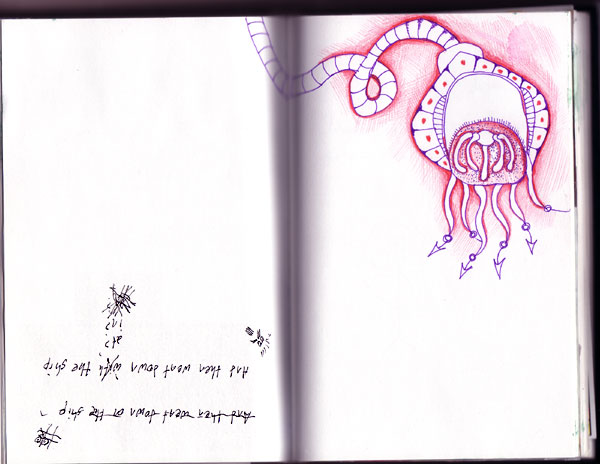 And then went down the ship
And then went down with the ship
at?
in?